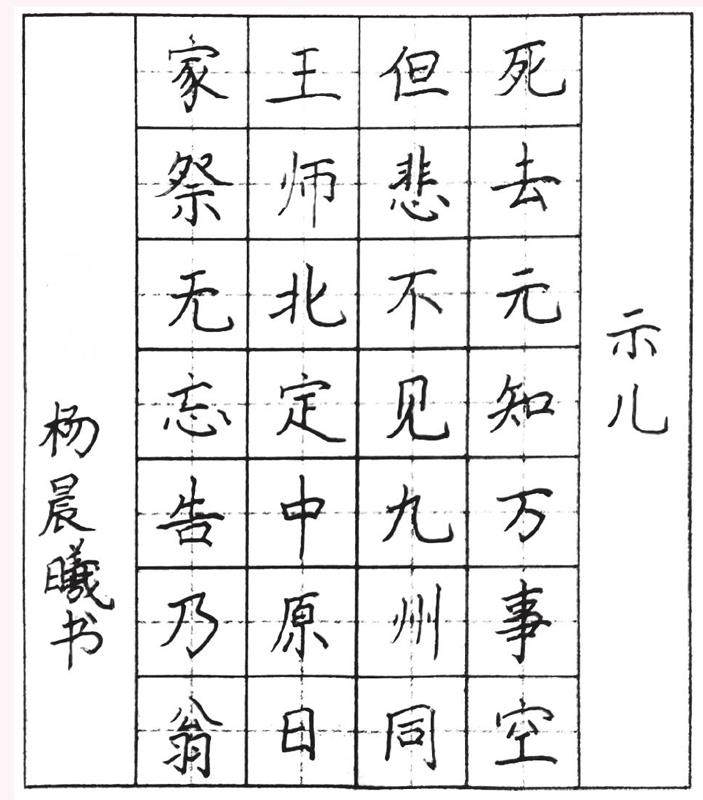 示儿
死去元知万事空
但悲不见九州同
王师北定中原日
家祭无忘告乃翁
杨晨曦书